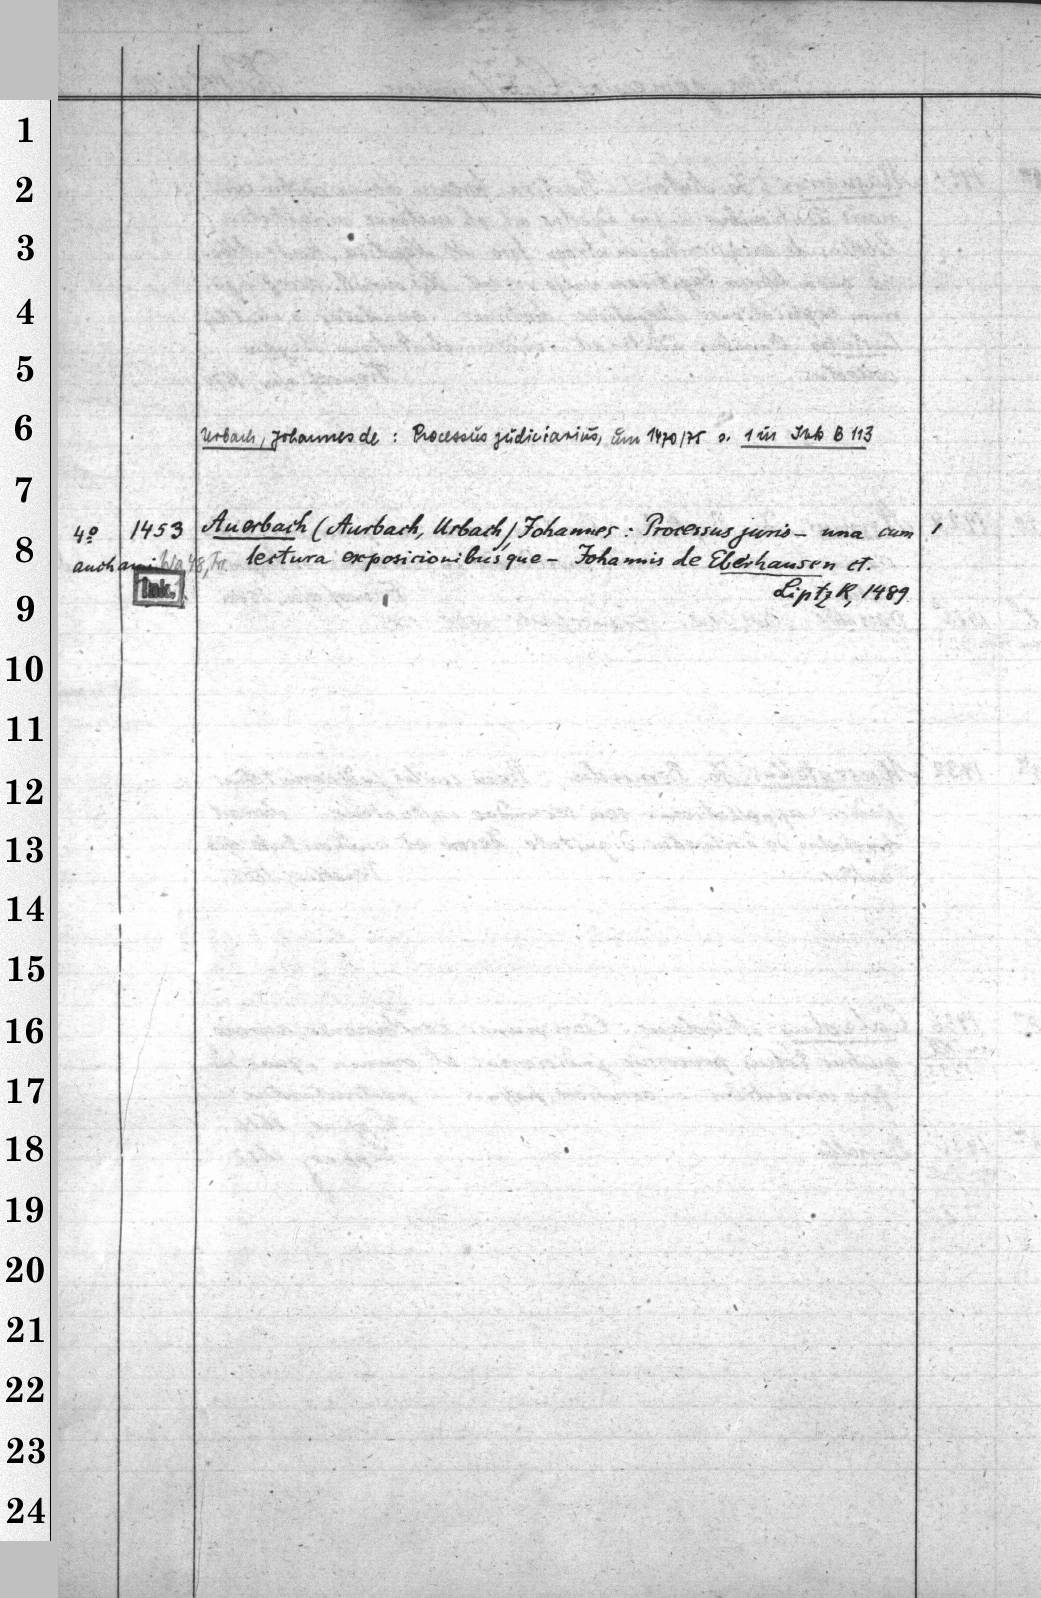 1
2
3
4
5
6
Urbach, Johannes de : Processus judiciarius, um 1470/75 s. 1 in Ink B 113
7
4º 1453 Auerbach (Aurbach, Urbach) Johannes : Processus juris — una cum 1
8
auch an: Wa 48, Fr. lectura exposicionibusque — Johannis de Eberhausen et.
Ink.
9
Liptz K, 1489
10
11
12
13
14
15
16
17
18
19
20
21
22
23
24